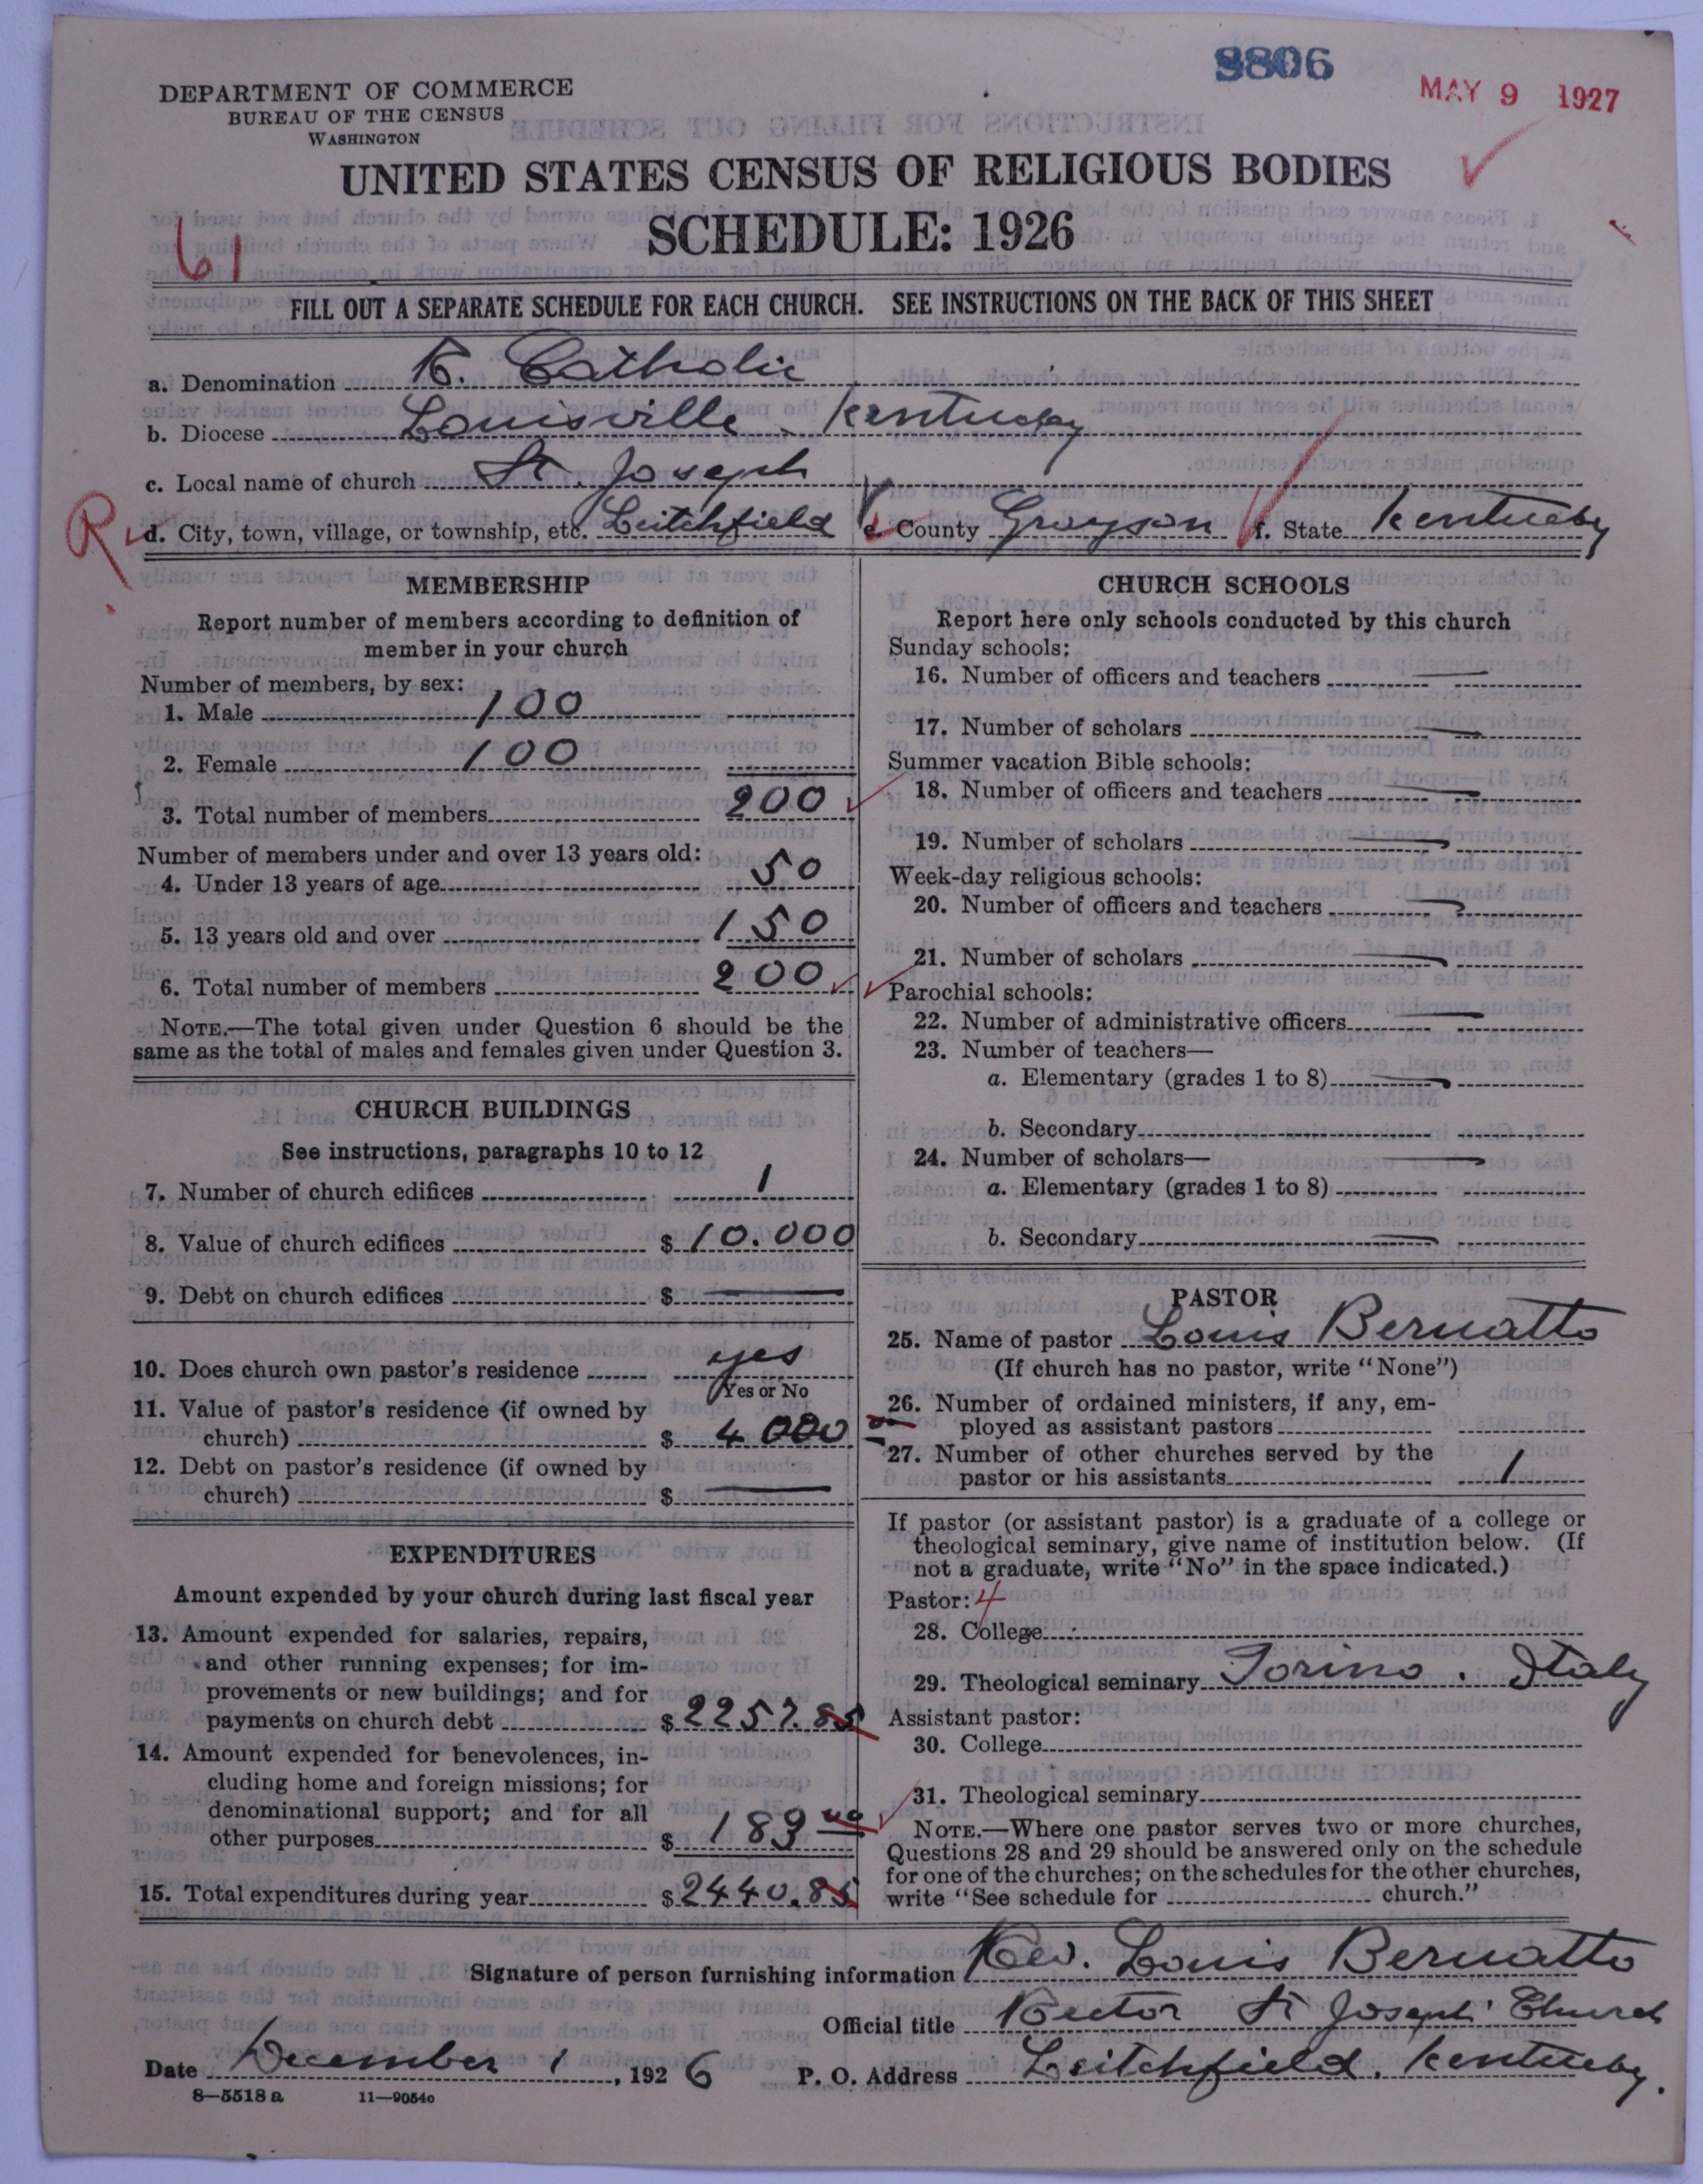 9806
MAY 9 1927
DEPARTMENT OF COMMERCE
BUREAU OF THE CENSUS
WASHINGTON
UNITED STATES CENSUS OF RELIGIOUS BODIES
SCHEDULE: 1926
61
FILL OUT A SEPARATE SCHEDULE FOR EACH CHURCH. SEE INSTRUCTIONS ON THE BACK OF THIS SHEET
a. Denomination R. Catholic
b. Diocese Louisville. Kentucky
c. Local name of church St. Joseph
R d. City, town, village, or township, etc. Leitchfield e. County Grayson f. State Kentucky
MEMBERSHIP
Report number of members according to definition of
member in your church
Number of members, by sex:
1. Male 100
2. Female 100
3. Total number of members 200
Number of members under and over 13 years old:
4. Under 13 years of age 50
5. 13 years old and over 150
6. Total number of members 200
NOTE.—The total given under Question 6 should be the
same as the total of males and females given under Question 3.
CHURCH BUILDINGS
See instructions, paragraphs 10 to 12
7. Number of church edifices 1
8. Value of church edifices $ 10.000
9. Debt on church edifices $ —
10. Does church own pastor's residence yes
Yes or No
11. Value of pastor's residence (if owned by
church) $ 4000
12. Debt on pastor's residence (if owned by
church) $ —
EXPENDITURES
Amount expended by your church during last fiscal year
13. Amount expended for salaries, repairs,
and other running expenses; for im-
provements or new buildings; and for
payments on church debt $ 2257.85
14. Amount expended for benevolences, in-
cluding home and foreign missions; for
denominational support; and for all
other purposes $ 183 00
15. Total expenditures during year $ 2440.85
CHURCH SCHOOLS
Report here only schools conducted by this church
Sunday schools:
16. Number of officers and teachers —
17. Number of scholars —
Summer vacation Bible schools:
18. Number of officers and teachers —
19. Number of scholars —
Week-day religious schools:
20. Number of officers and teachers —
21. Number of scholars —
Parochial schools:
22. Number of administrative officers —
23. Number of teachers—
a. Elementary (grades 1 to 8) —
b. Secondary
24. Number of scholars— —
a. Elementary (grades 1 to 8)
b. Secondary —
PASTOR
25. Name of pastor Louis Bernatto
(If church has no pastor, write "None")
26. Number of ordained ministers, if any, em-
ployed as assistant pastors
27. Number of other churches served by the
pastor or his assistants 1
If pastor (or assistant pastor) is a graduate of a college or
theological seminary, give name of institution below. (If
not a graduate, write "No" in the space indicated.)
Pastor: 4
28. College
29. Theological seminary Torino. Italy
Assistant pastor:
30. College
31. Theological seminary
NOTE.—Where one pastor serves two or more churches,
Questions 28 and 29 should be answered only on the schedule
for one of the churches; on the schedules for the other churches,
write "See schedule for church."
Signature of person furnishing information Rev. Louis Bernatto
Official title Rector St Joseph' Church
Date December 1, 1926 P. O. Address Leitchfield, Kentucky.
8—5518 a 11—9054c